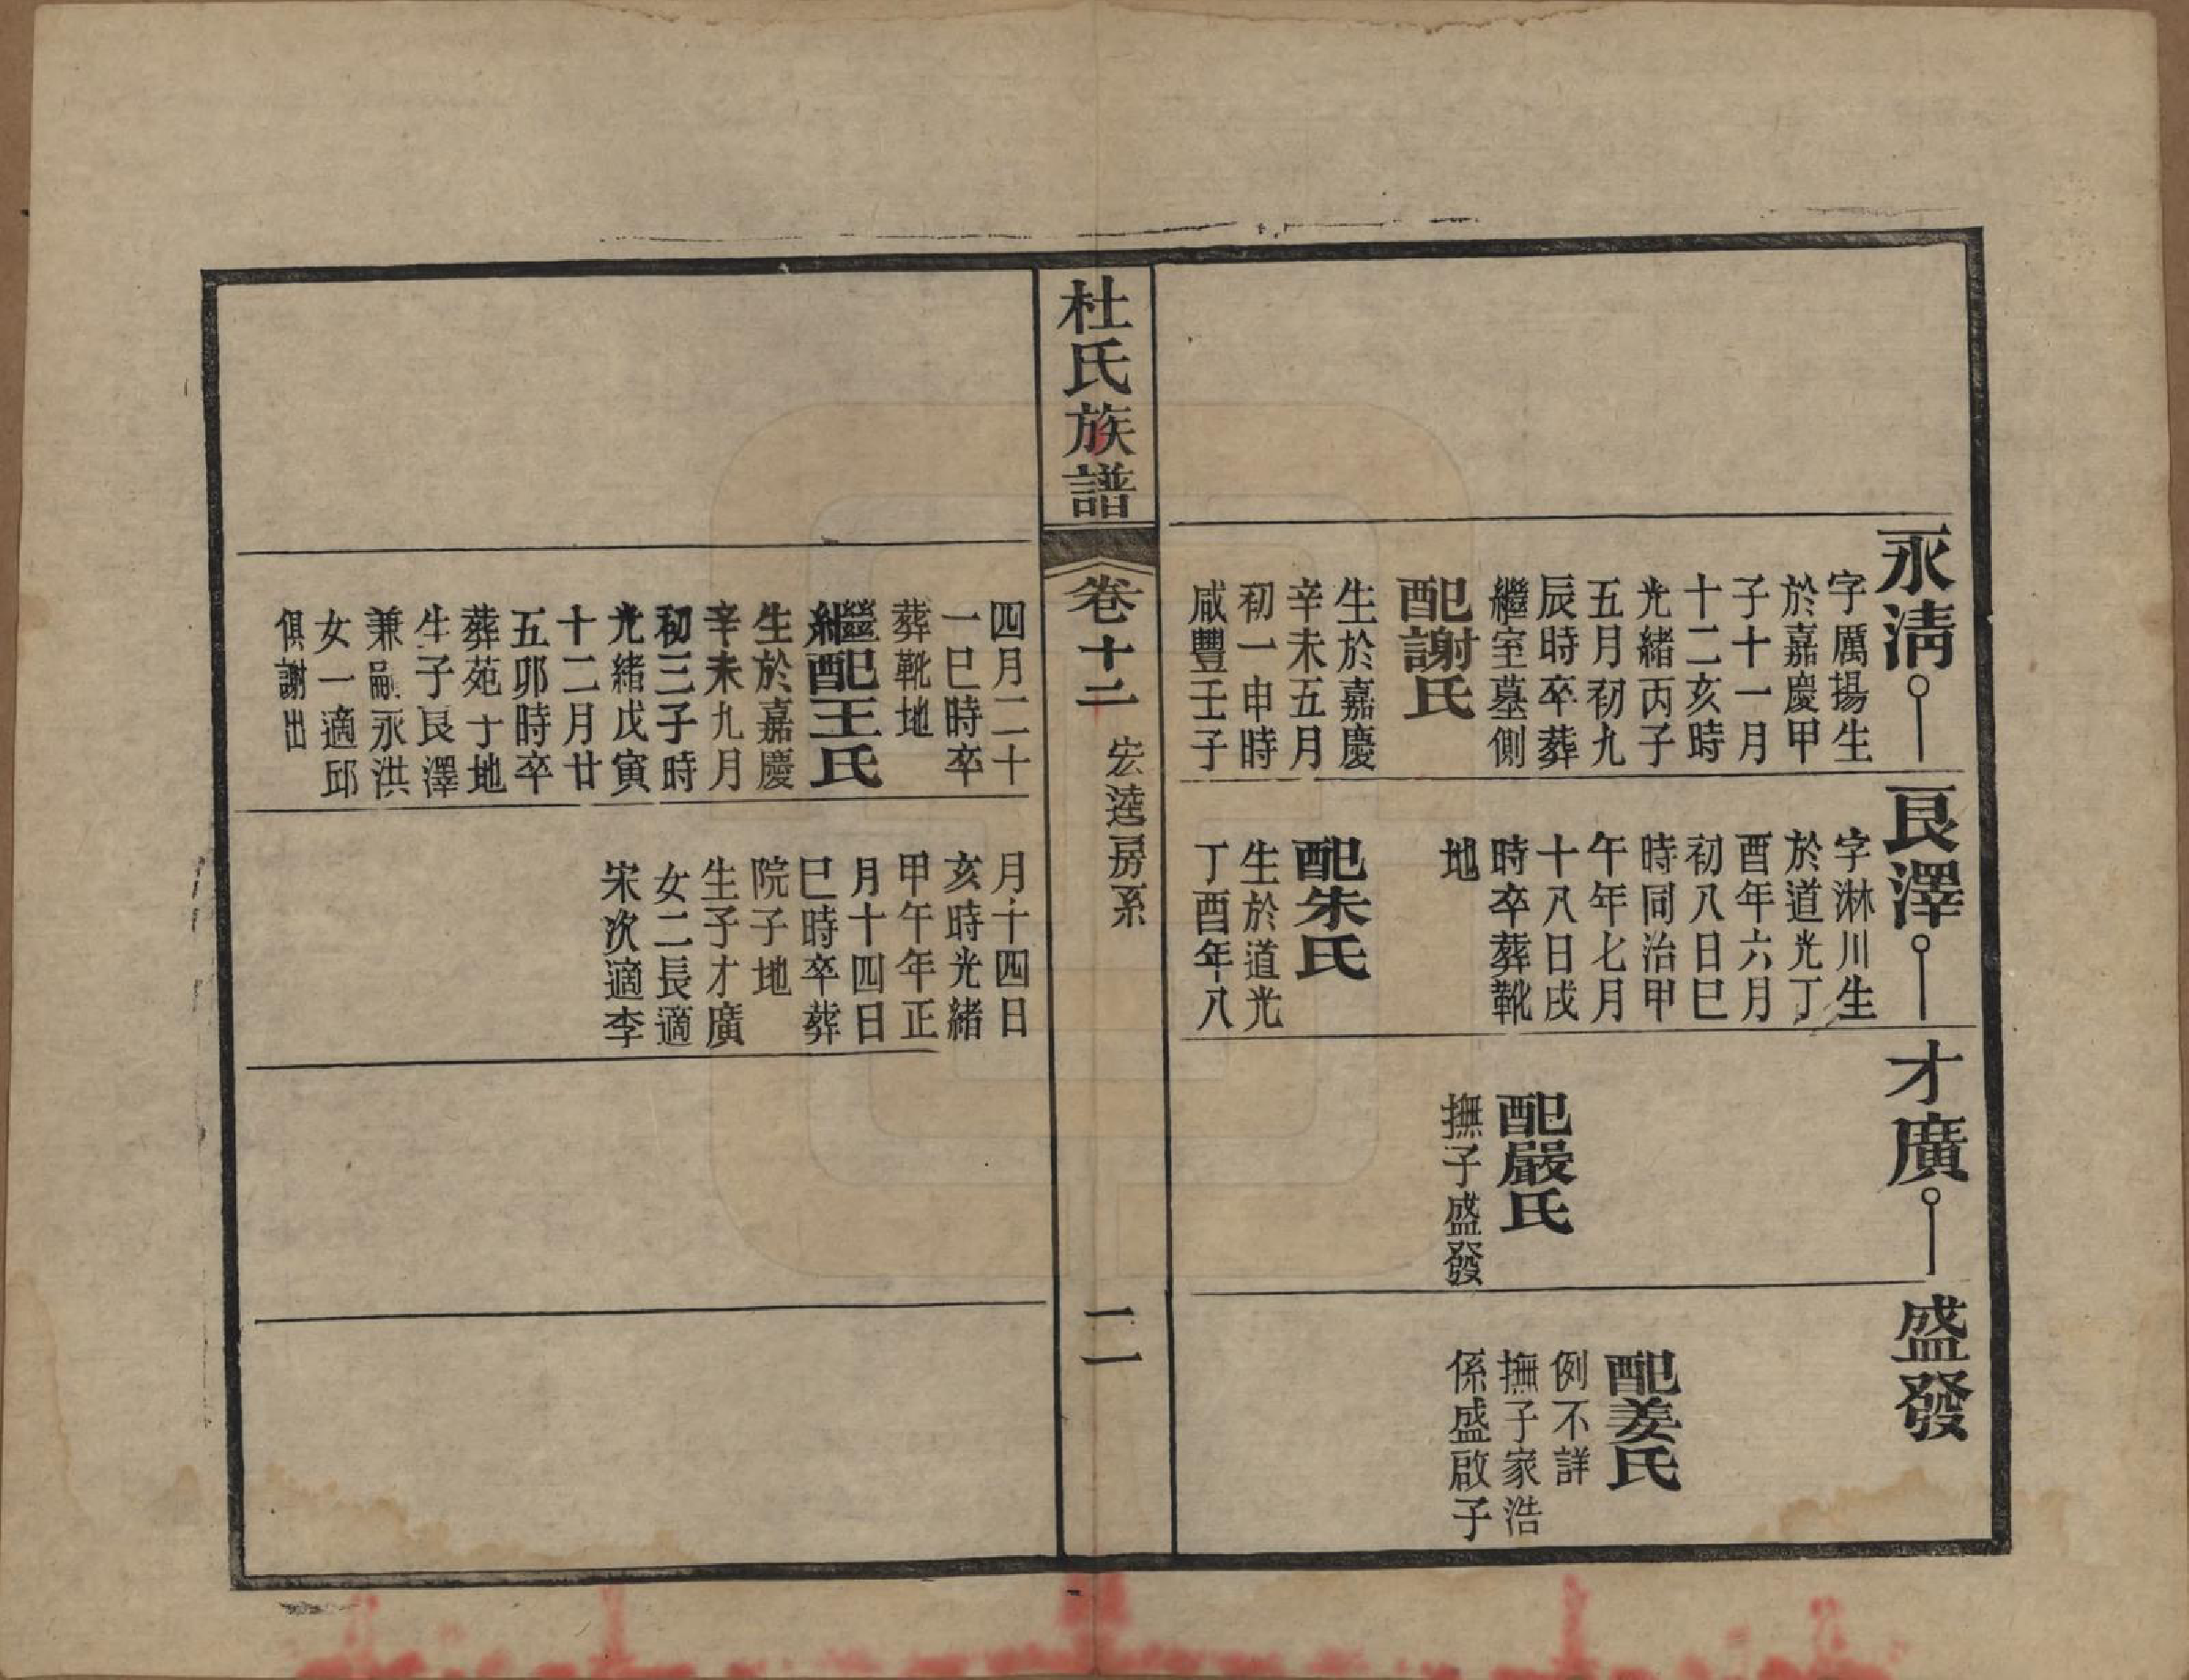 永淸
字厲揚生
於嘉慶甲
子十一月
十二亥時
光緒丙子
五月初九
辰時卒葬
繼室墓側
配謝氏
生於嘉慶
辛未五月
初一申時
咸豐壬子
艮澤
字淋川生
於道光丁
酉年六月
初八日巳
時同治甲
午年七月
十八日戌
時卒葬靴
地
配朱氏
生於道光
丁酉年八
才廣
配嚴氏
撫子盛發
盛發
配姜氏
例不詳
撫子家浩
係盛啟子
杜氏族譜
卷十二
宏逵房系
二一
四月二十
一巳時卒
葬靴地
繼配王氏
生於嘉慶
辛未九月
初三子時
光緒戊寅
十二月廿
五卯時卒
葬苑于地
生子艮澤
兼嗣永洪
女一適邱
俱謝出
月十四日
亥時光緒
甲午年正
月十四日
巳時卒葬
院子地
生子才廣
女二長適
宋次適李